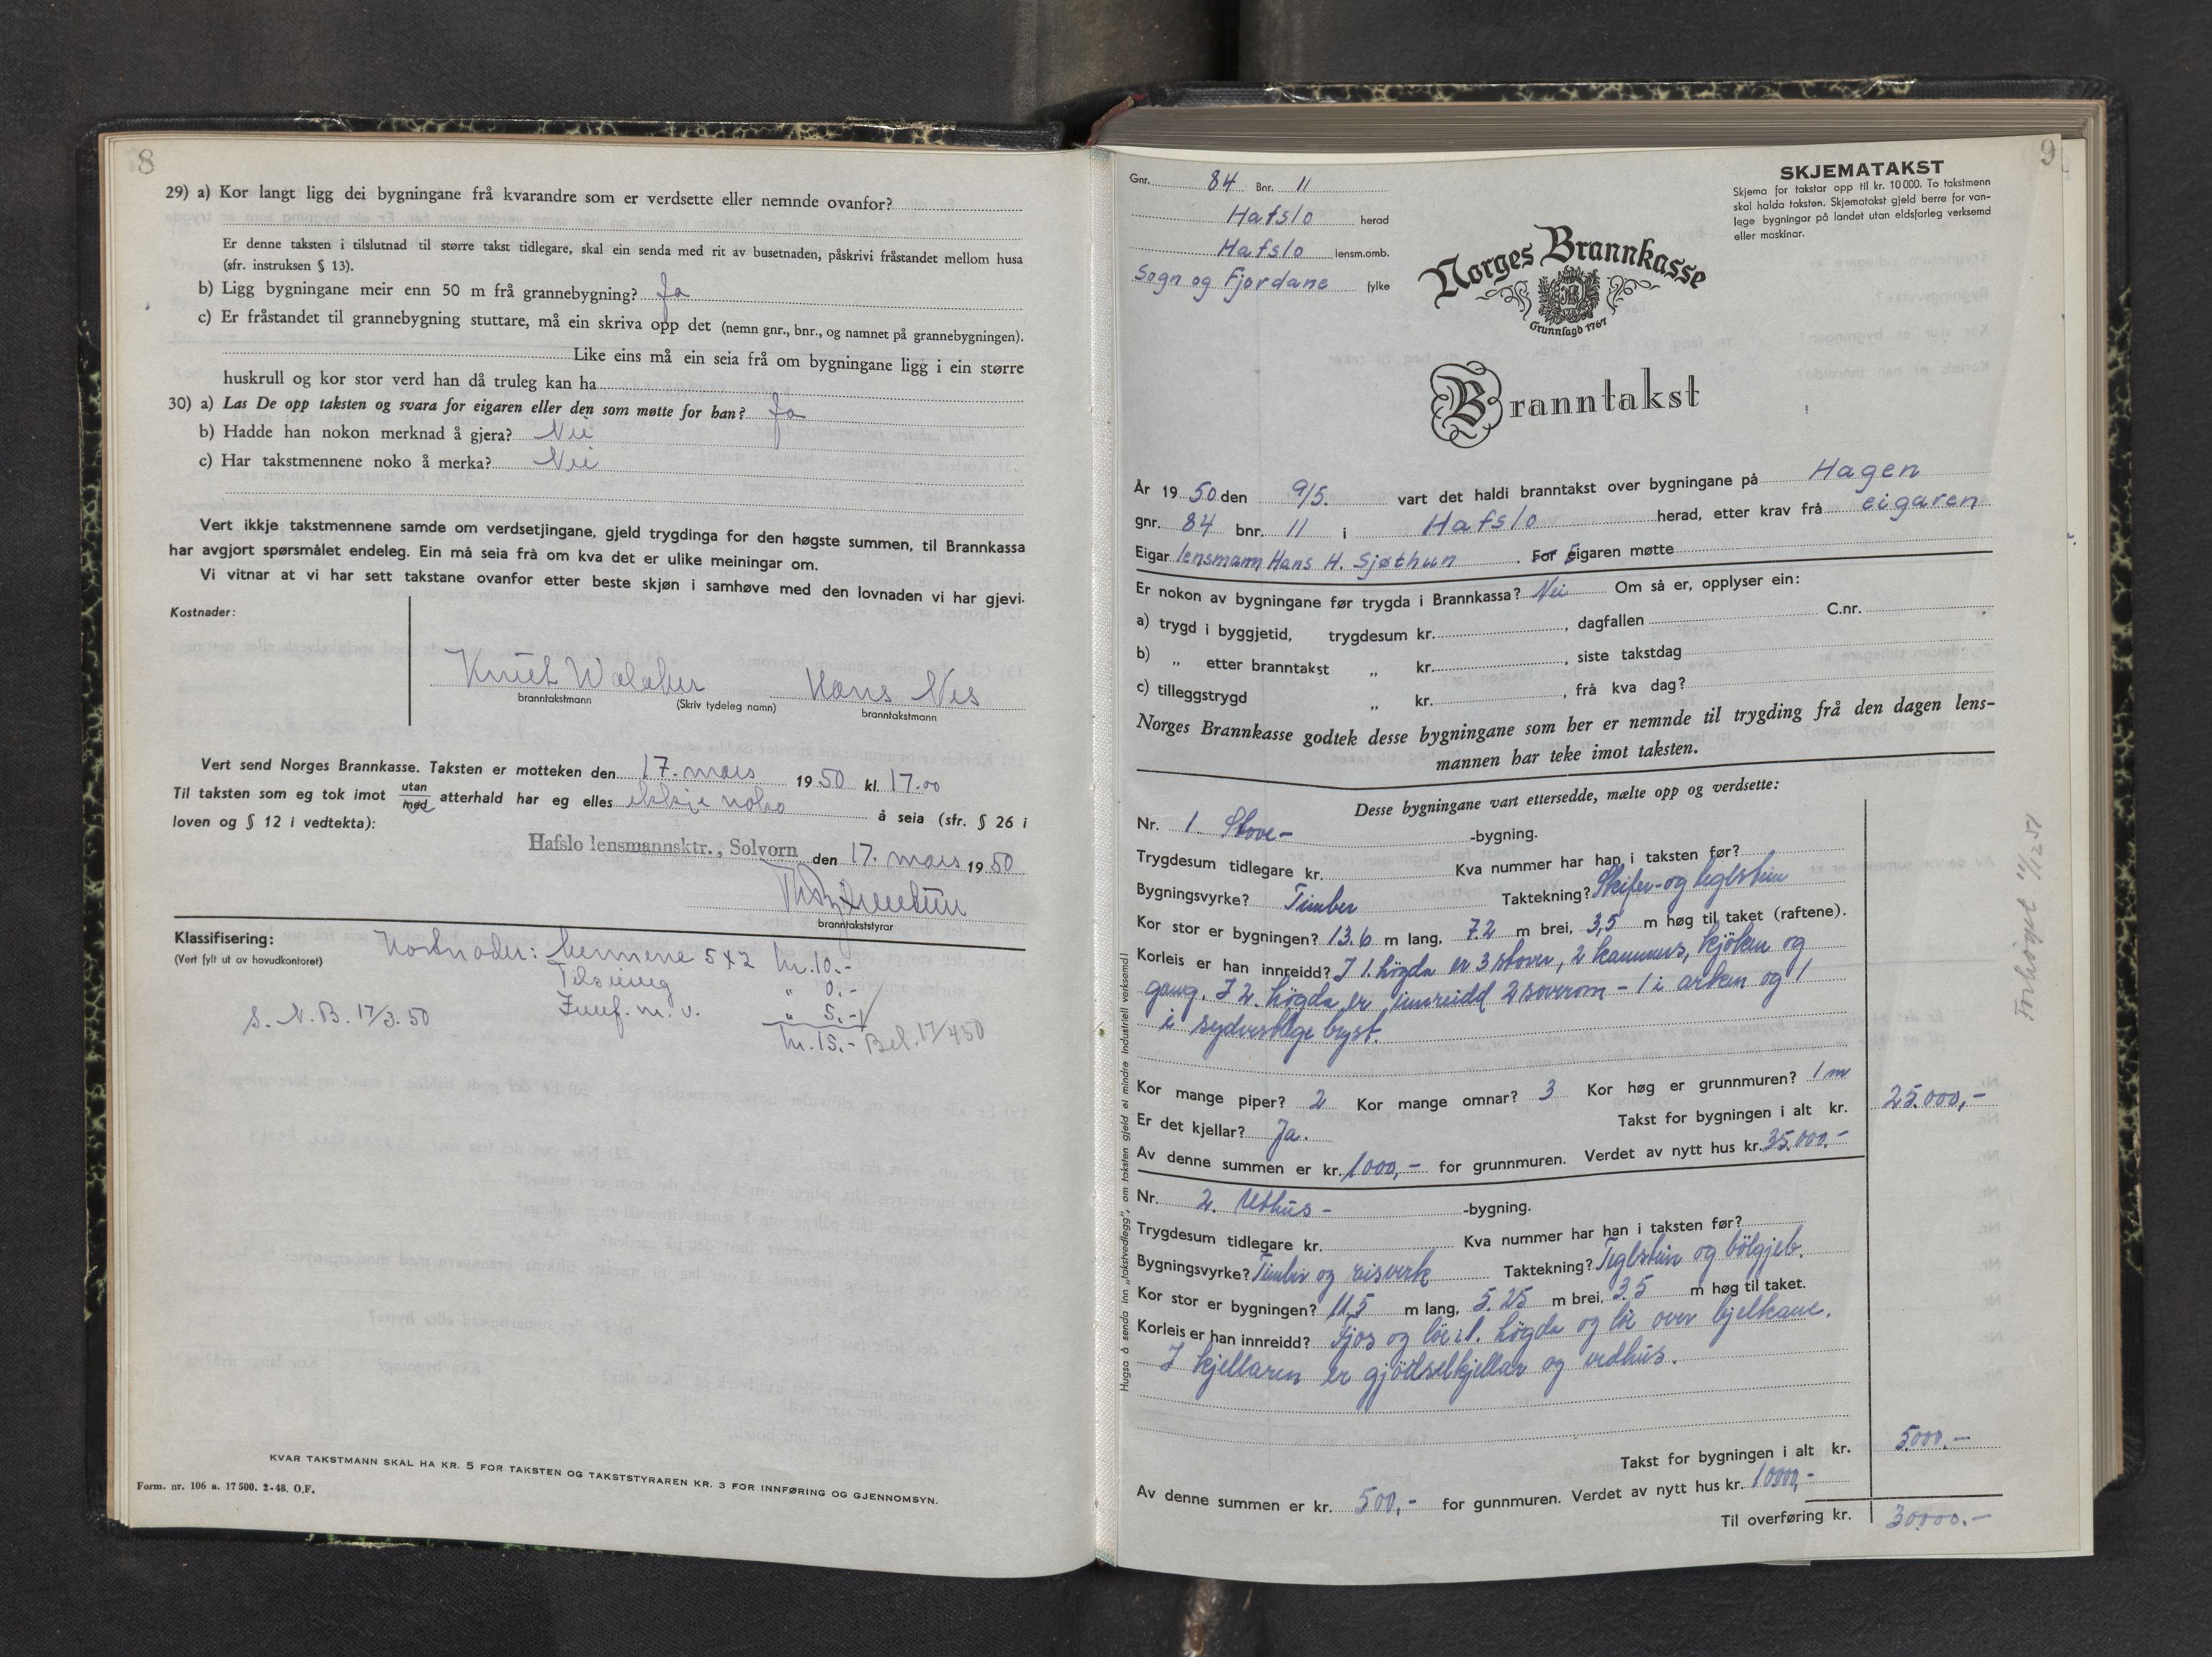 8
29) a) Kor langt ligg dei bygningane frå kvarandre som er verdsette eller nemnde ovanfor?
Er denne taksten i tilslutnad til større takst tidlegare, skal ein senda med rit av busetnaden, påskrivi fråstandet mellom husa
(sfr. instruksen § 13).
b) Ligg bygningane meir enn 50 m frå grannebygning? Ja
c) Er fråstandet til grannebygning stuttare, må ein skriva opp det (nemn gnr., bnr., og namnet på grannebygningen).
Like eins må ein seia frå om bygningane ligg i ein større
huskrull og kor stor verd han då truleg kan ha
30) a) Las De opp taksten og svara for eigaren eller den som møtte for han? Ja
b) Hadde han nokon merknad å gjera? Nei
c) Har takstmennene noko å merka? Nei
Vert ikkje takstmennene samde om verdsetjingane, gjeld trygdinga for den høgste summen, til Brannkassa
har avgjort spørsmålet endeleg. Ein må seia frå om kva det er ulike meiningar om.
Vi vitnar at vi har sett takstane ovanfor etter beste skjøn i samhøve med den lovnaden vi har gjevi.
Kostnader:
Knut Walaker Hans Nes
branntakstmann (Skriv tydeleg namn) branntakstmann
Vert send Norges Brannkasse. Taksten er motteken den 17. mars 1950 kl. 17.00
Til taksten som eg tok imot utan/med atterhald har eg elles ikkje noko å seia (sfr. § 26 i
loven og § 12 i vedtekta):
Hafslo lensmannsktr., Solvorn den 17. mars 1950
branntakststyrar
Klassifisering:
(Vert fylt ut av hovudkontoret)
Kostnader: Mennene 5 x 2 kr. 10.-
" 0.-
Innf. m. v. " 5.-
S. N. B. 17/3. 50
kr. 15.- Bet. 17/4 50
KVAR TAKSTMANN SKAL HA KR. 5 FOR TAKSTEN OG TAKSTSTYRAREN KR. 3 FOR INNFØRING OG GJENNOMSYN.
Form. nr. 106 a. 17 500. 2-48. O.F.
9
Gnr. 84 Bnr. 11
Hafslo herad
Hafslo lensm.omb.
Sogn og Fjordane fylke
SKJEMATAKST
Skjema for takstar opp til kr. 10 000. To takstmenn
skal halda taksten. Skjematakst gjeld berre for van-
lege bygningar på landet utan eldsfarleg verksemd
eller maskinar.
Norges Brannkasse
Grunnlagd 1767
Branntakst
År 1950 den 9/5. vart det haldi branntakst over bygningane på Hagen
gnr. 84 bnr. 11 i Hafslo herad, etter krav frå eigaren
Eigar lensmann Hans H. Sjøthun. For Eigaren møtte
Er nokon av bygningane før trygda i Brannkassa? Nei Om så er, opplyser ein:
a) trygd i byggjetid, trygdesum kr. , dagfallen C.nr.
b) „ etter branntakst „ kr. , siste takstdag
c) tilleggstrygd „ kr. , frå kva dag?
Norges Brannkasse godtek desse bygningane som her er nemnde til trygding frå den dagen lens-
mannen har teke imot taksten.
Desse bygningane vart ettersedde, mælte opp og verdsette:
Nr. 1. Stove- -bygning.
Trygdesum tidlegare kr. Kva nummer har han i taksten før?
Bygningsvyrke? Timber Taktekning? Skifer- og teglstein
Kor stor er bygningen? 13.6 m lang, 7.2 m brei, 3,5 m høg til taket (raftene).
Korleis er han innreidd? I 1. högda er 3 stover, 2 kammers, kjöken og
gang. I 2. högda er innreidd 2 soverom - 1 i arken og 1
i sydvestlege bryst.
Kor mange piper? 2 Kor mange omnar? 3 Kor høg er grunnmuren? 1 m
Er det kjellar? Ja. Takst for bygningen i alt kr. 25.000,-
Av denne summen er kr. 1000,- for grunnmuren. Verdet av nytt hus kr. 35.000.-
Nr. 2. Uthus- -bygning.
Trygdesum tidlegare kr. Kva nummer har han i taksten før?
Bygningsvyrke? Timber og reisverk Taktekning? Teglstein og bölgjeb.
Kor stor er bygningen? 11.5 m lang, 5.25 m brei, 3.5 m høg til taket.
Korleis er han innreidd? Fjos og löe i 1. högda og löe over bjelkane.
I kjellaren er gjödselkjellar og vedhus.
Takst for bygningen i alt kr. 5000.-
Av denne summen er kr. 500,- for gunnmuren. Verdet av nytt hus kr. 10000,-
Til overføring kr. 30000.-
Hugsa å senda inn „takstvedlegg", om taksten gjeld ei mindre industriell verksemd!
Forhöyet 1/12 51